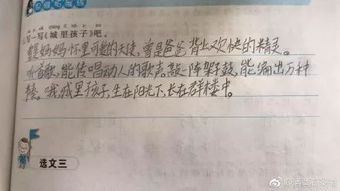 写一写《城里孩子》吧。
妈妈怀里可爱的天使,曾是爸爸背上欢快的精灵。
能传唱动人的歌声,敲一阵架子鼓,能编出万种
我,城里孩子,生在阳光下,长在群楼中。
选文三